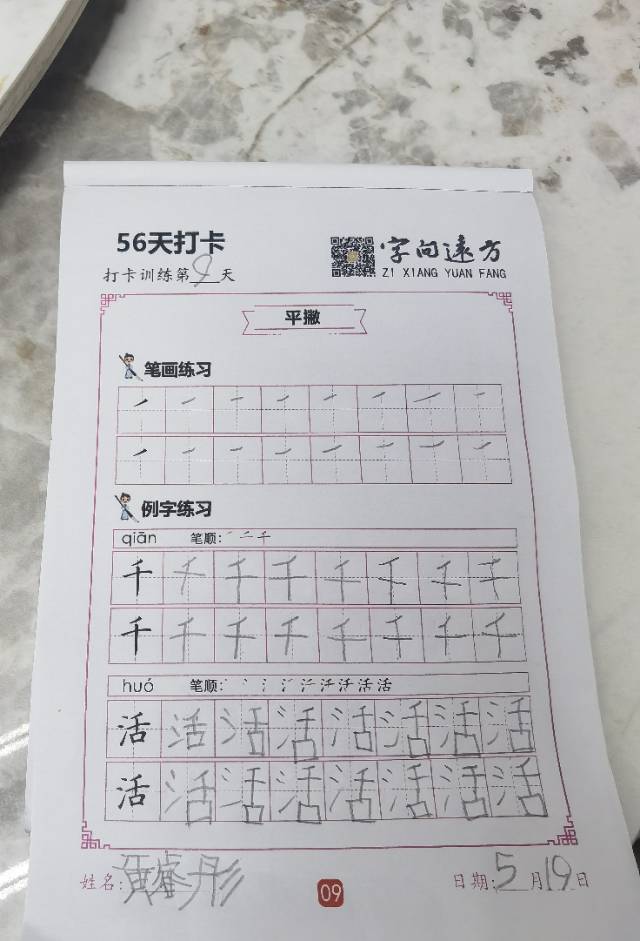 56天打卡
字向远方
打卡训练第9天
ZI XIANG YUAN FANG
平撇
笔画练习
例字练习
qiān 笔顺:
千 千 千 千 千 千 千 千
千 千 千 千 千 千 千 千
huó 笔顺:
活 活 活 活 活 活 活 活
活 活 活 活 活 活 活 活
姓名:黄睿彤
09
日期:5月19日